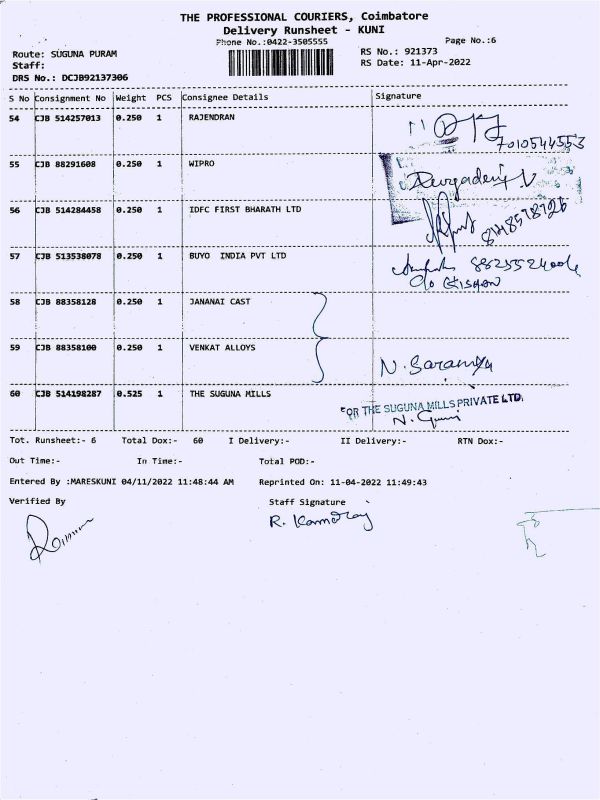 THE PROFESSIONAL COURIERS, Coimbatore
Delivery Runsheet - KUNI
Phone No.:0422-3505555
Page No.:6
Route: SUGUNA PURAM
RS No.: 921373
Staff:
RS Date: 11-Apr-2022
DRS No.: DCJB92137306
S No Consignment No Weight PCS Consignee Details Signature
54 CJB 514257013 0.250 1 RAJENDRAN
7010544553
55 CJB 88291608 0.250 1 WIPRO
56 CJB 514284458 0.250 1 IDFC FIRST BHARATH LTD
57 CJB 513538078 0.250 1 BUYO INDIA PVT LTD
58 CJB 88358128 0.250 1 JANANAI CAST
59 CJB 88358100 0.250 1 VENKAT ALLOYS
N. Saramya
60 CJB 514198287 0.525 1 THE SUGUNA MILLS
FOR THE SUGUNA MILLS PRIVATE LTD.
Tot. Runsheet:- 6 Total Dox:- 60 I Delivery:- II Delivery:- RTN Dox:-
Out Time:- In Time:- Total POD:-
Entered By :MARESKUNI 04/11/2022 11:48:44 AM Reprinted On: 11-04-2022 11:49:43
Verified By Staff Signature
R. Kamaraj